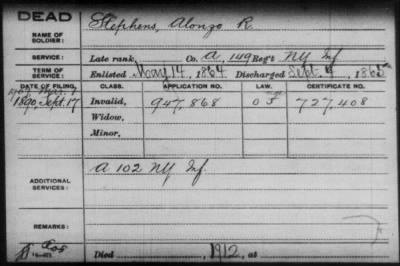 DEAD
NAME OF SOLDIER: Stephens, Alonzo R.
SERVICE: Late rank, Co. A, 149 Reg't NY Inf
TERM OF SERVICE: Enlisted May 14, 1864 Discharged Sept , 1865
DATE OF FILING. CLASS. APPLICATION NO. LAW. CERTIFICATE NO.
1890, Sept. 17 Invalid, 947,868 727,408
Widow,
Minor,
ADDITIONAL SERVICES: A 102 NY Inf.
REMARKS:
Died , 1912, at